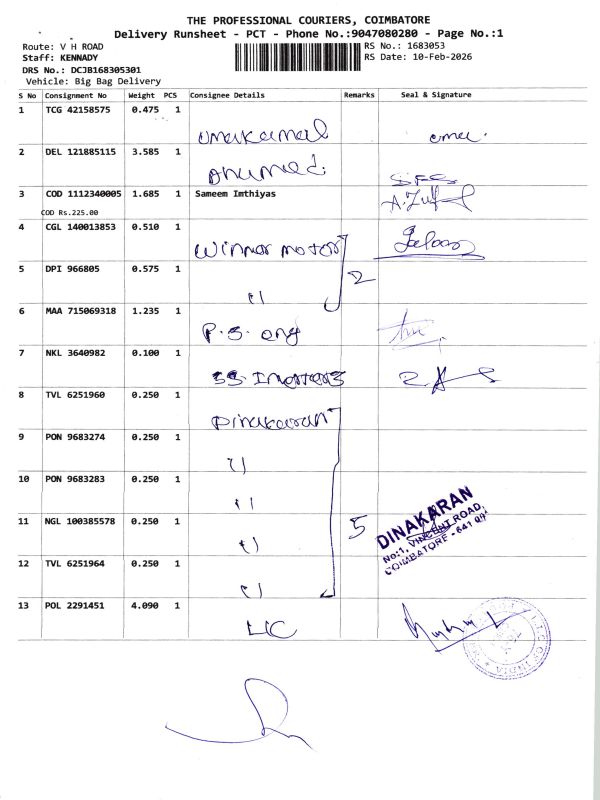 THE PROFESSIONAL COURIERS, COIMBATORE
Delivery Runsheet - PCT - Phone No.:9047080280 - Page No.:1
Route: V H ROAD
Staff: KENNADY
DRS No.: DCJB168305301
Vehicle: Big Bag Delivery
RS No.: 1683053
RS Date: 10-Feb-2026
S No Consignment No Weight PCS Consignee Details Remarks Seal & Signature
1 TCG 42158575 0.475 1 Umakamal uma.
2 DEL 121885115 3.585 1 Ahumed. SFS
3 COD 1112340005 1.685 1 Sameem Imthiyas
COD Rs.225.00
4 CGL 140013853 0.510 1 Winner motors
5 DPI 966805 0.575 1 " 2
6 MAA 715069318 1.235 1 P.S. eng
7 NKL 3640982 0.100 1 SS. Imotors
8 TVL 6251960 0.250 1 Dinakaran
9 PON 9683274 0.250 1 "
10 PON 9683283 0.250 1 "
11 NGL 100385578 0.250 1 " 5
DINAKARAN
No:1, VINCENT ROAD,
COIMBATORE - 641 001
12 TVL 6251964 0.250 1 "
13 POL 2291451 4.090 1 LIC